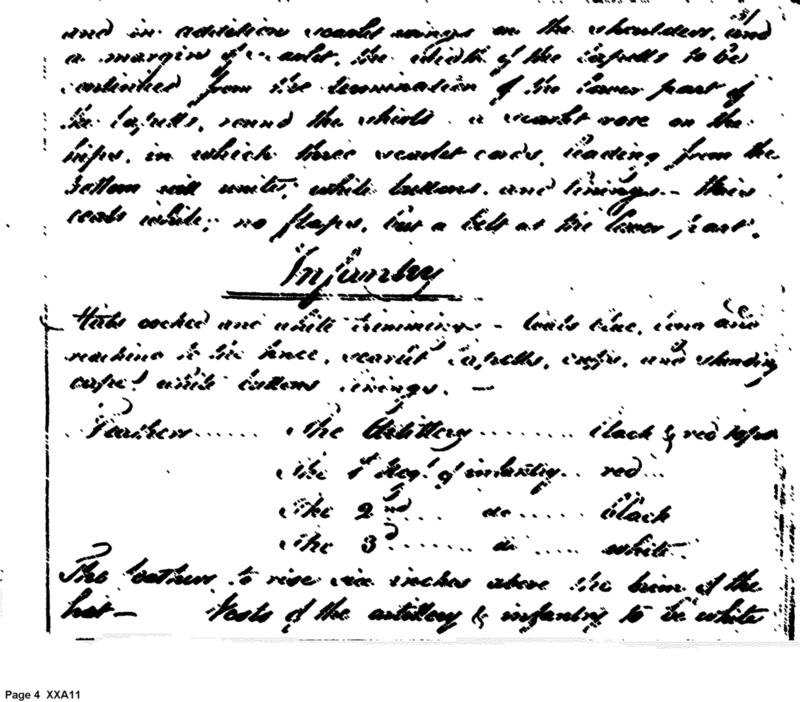 31
and in addition scarlet wings on the shoulders, and
a margin of scarlet, the width of the lapells to be
continued from the termination of the lower part of
the lapells, round the skirts – a scarlet rose on the
hips, in which three scarlet cords, leading from the
bottom will unite; white buttons, and linings – their
coats white; no flaps, but a belt at the lower part.
Infantry
Hats cocked and white trimmings – Coats blue, long and
reaching to the knee, scarlet lapells, cuffs, and standing
cape; white buttons linings. –
Feathers...... The Artillery......... black & red tops
The 1st Regt. of infantry.. red...
The 2nd..... do ..... black
The 3d ....... do ..... white.
The feathers to rise six inches above the brim of the
hat – Vests of the artillery & infantry to be white
Page 4 XXA11